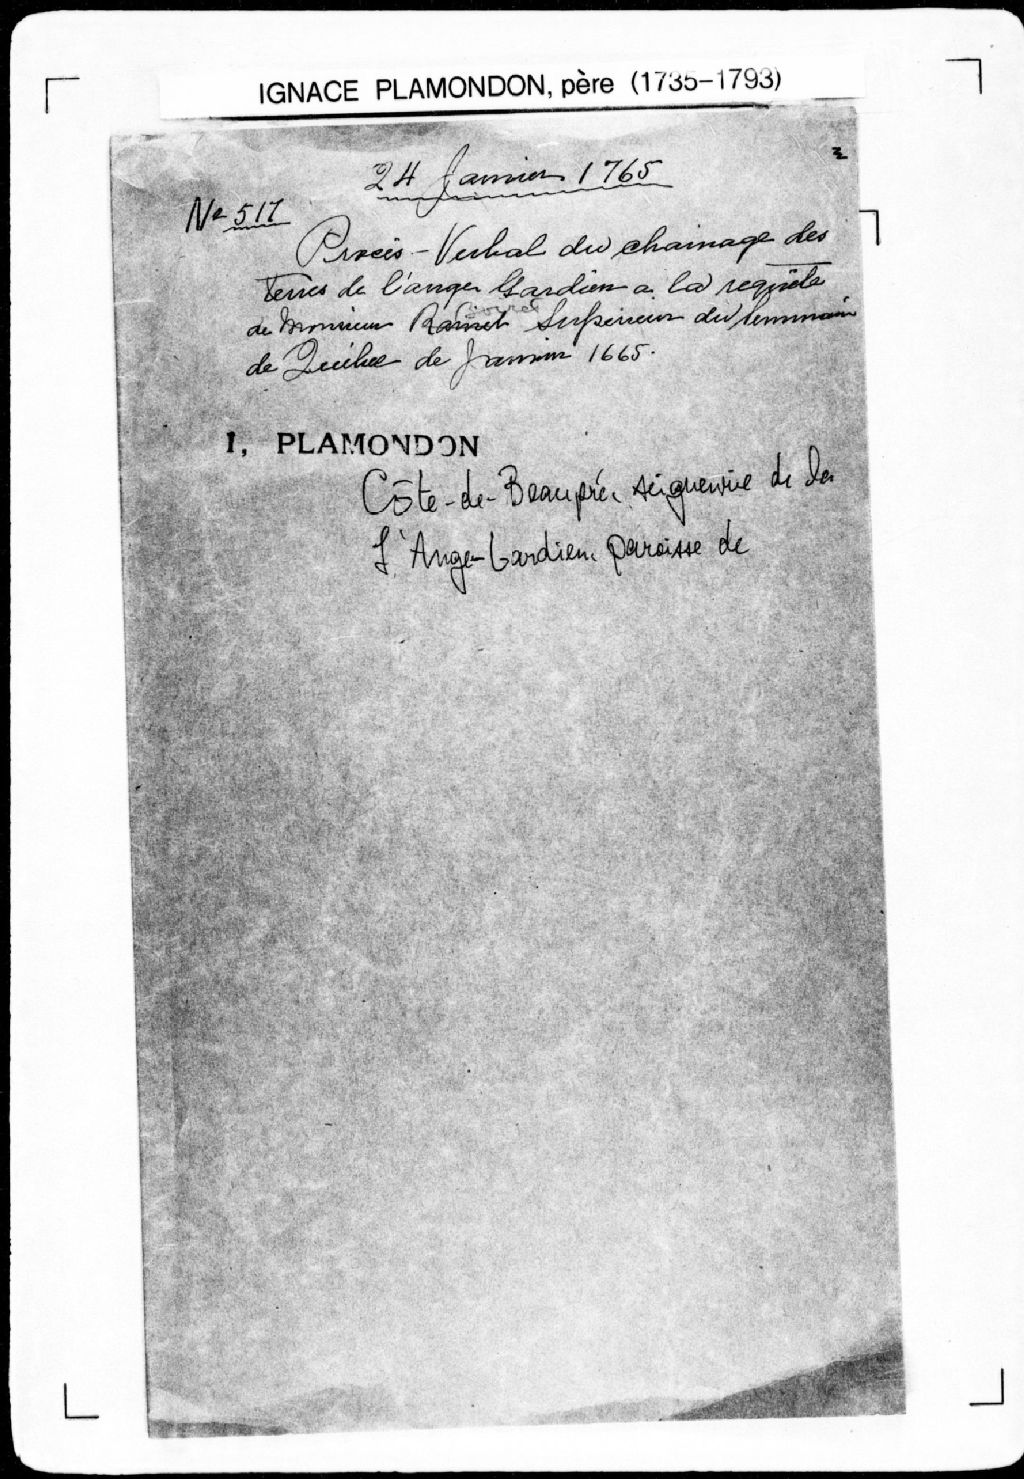 IGNACE PLAMONDON, père (1735-1793)
24 Janvier 1765
No 517
Procès-Verbal du chainage des
terres de l'ange Gardien a la requête
de Monsieur Superieur du Seminaire
de Québec de Janvier 1665.
I, PLAMONDON
Côte-de-Beaupré, seigneurie de la
L'Ange-Gardien, paroisse de